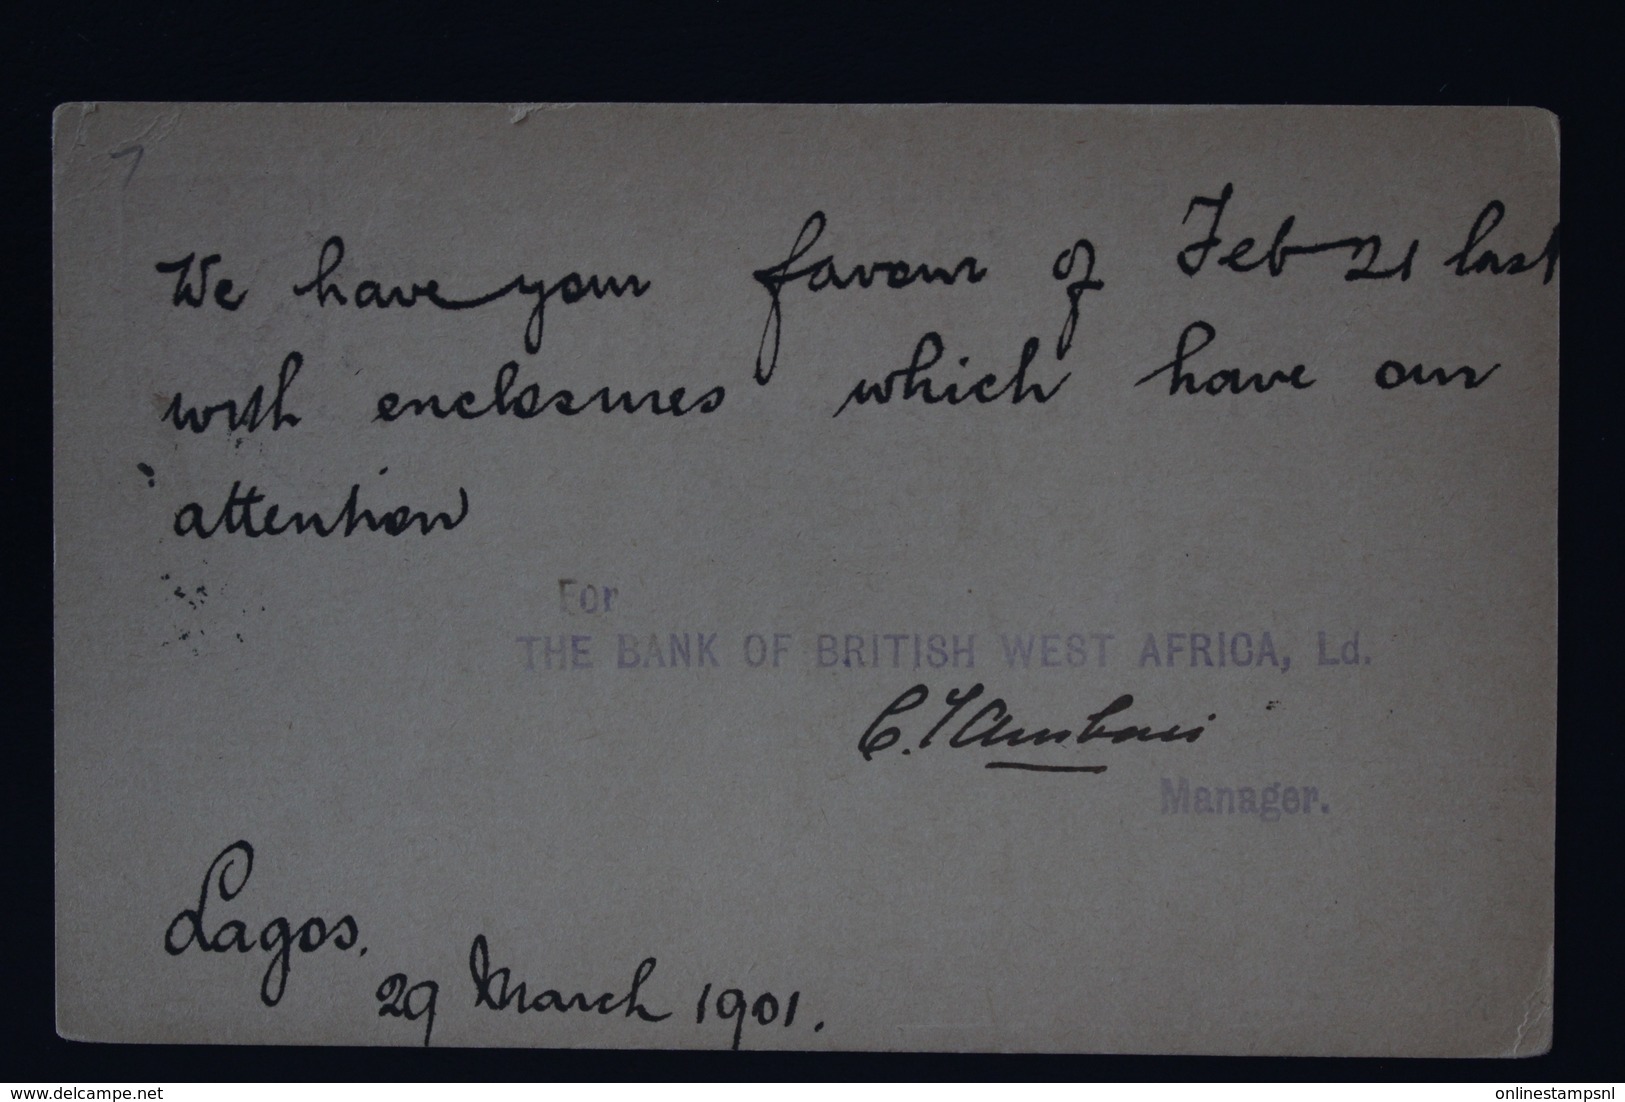 We have your favour of Feb 21 last
with enclosures which have our
attention
For
THE BANK OF BRITISH WEST AFRICA, Ld.
C.
Manager.
Lagos.
29 March 1901.
delcampe.net
onlinestampsnl